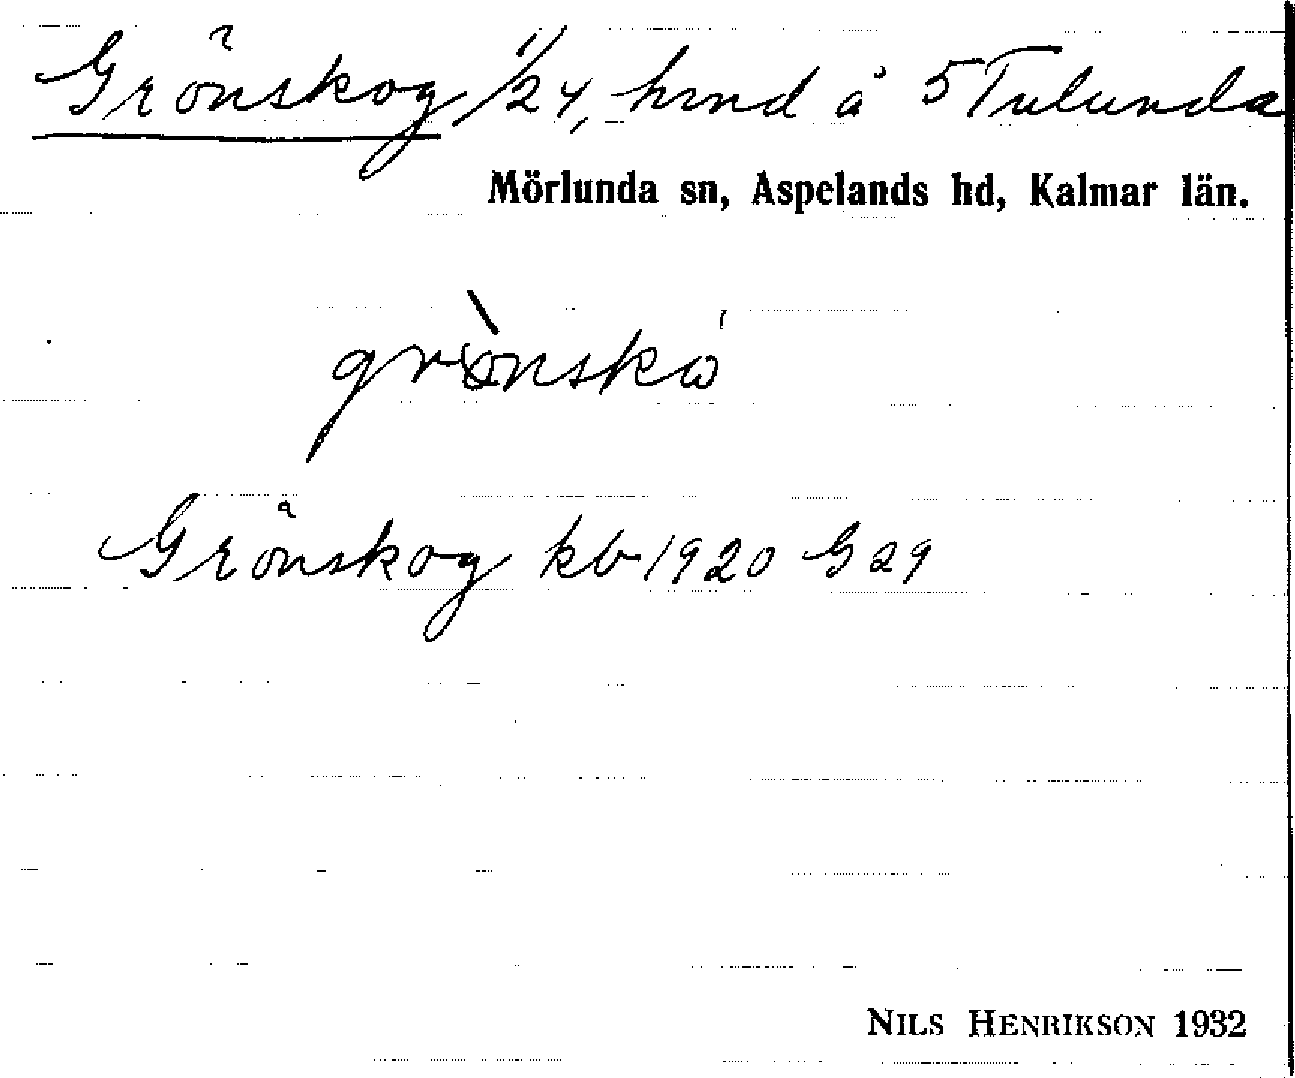 Grönskog 1/24, hmd å 5 Tulunda
Mörlunda sn, Aspelands hd, Kalmar län.
Grönskog kb 1920 G29
NILS HENRIKSON 1932